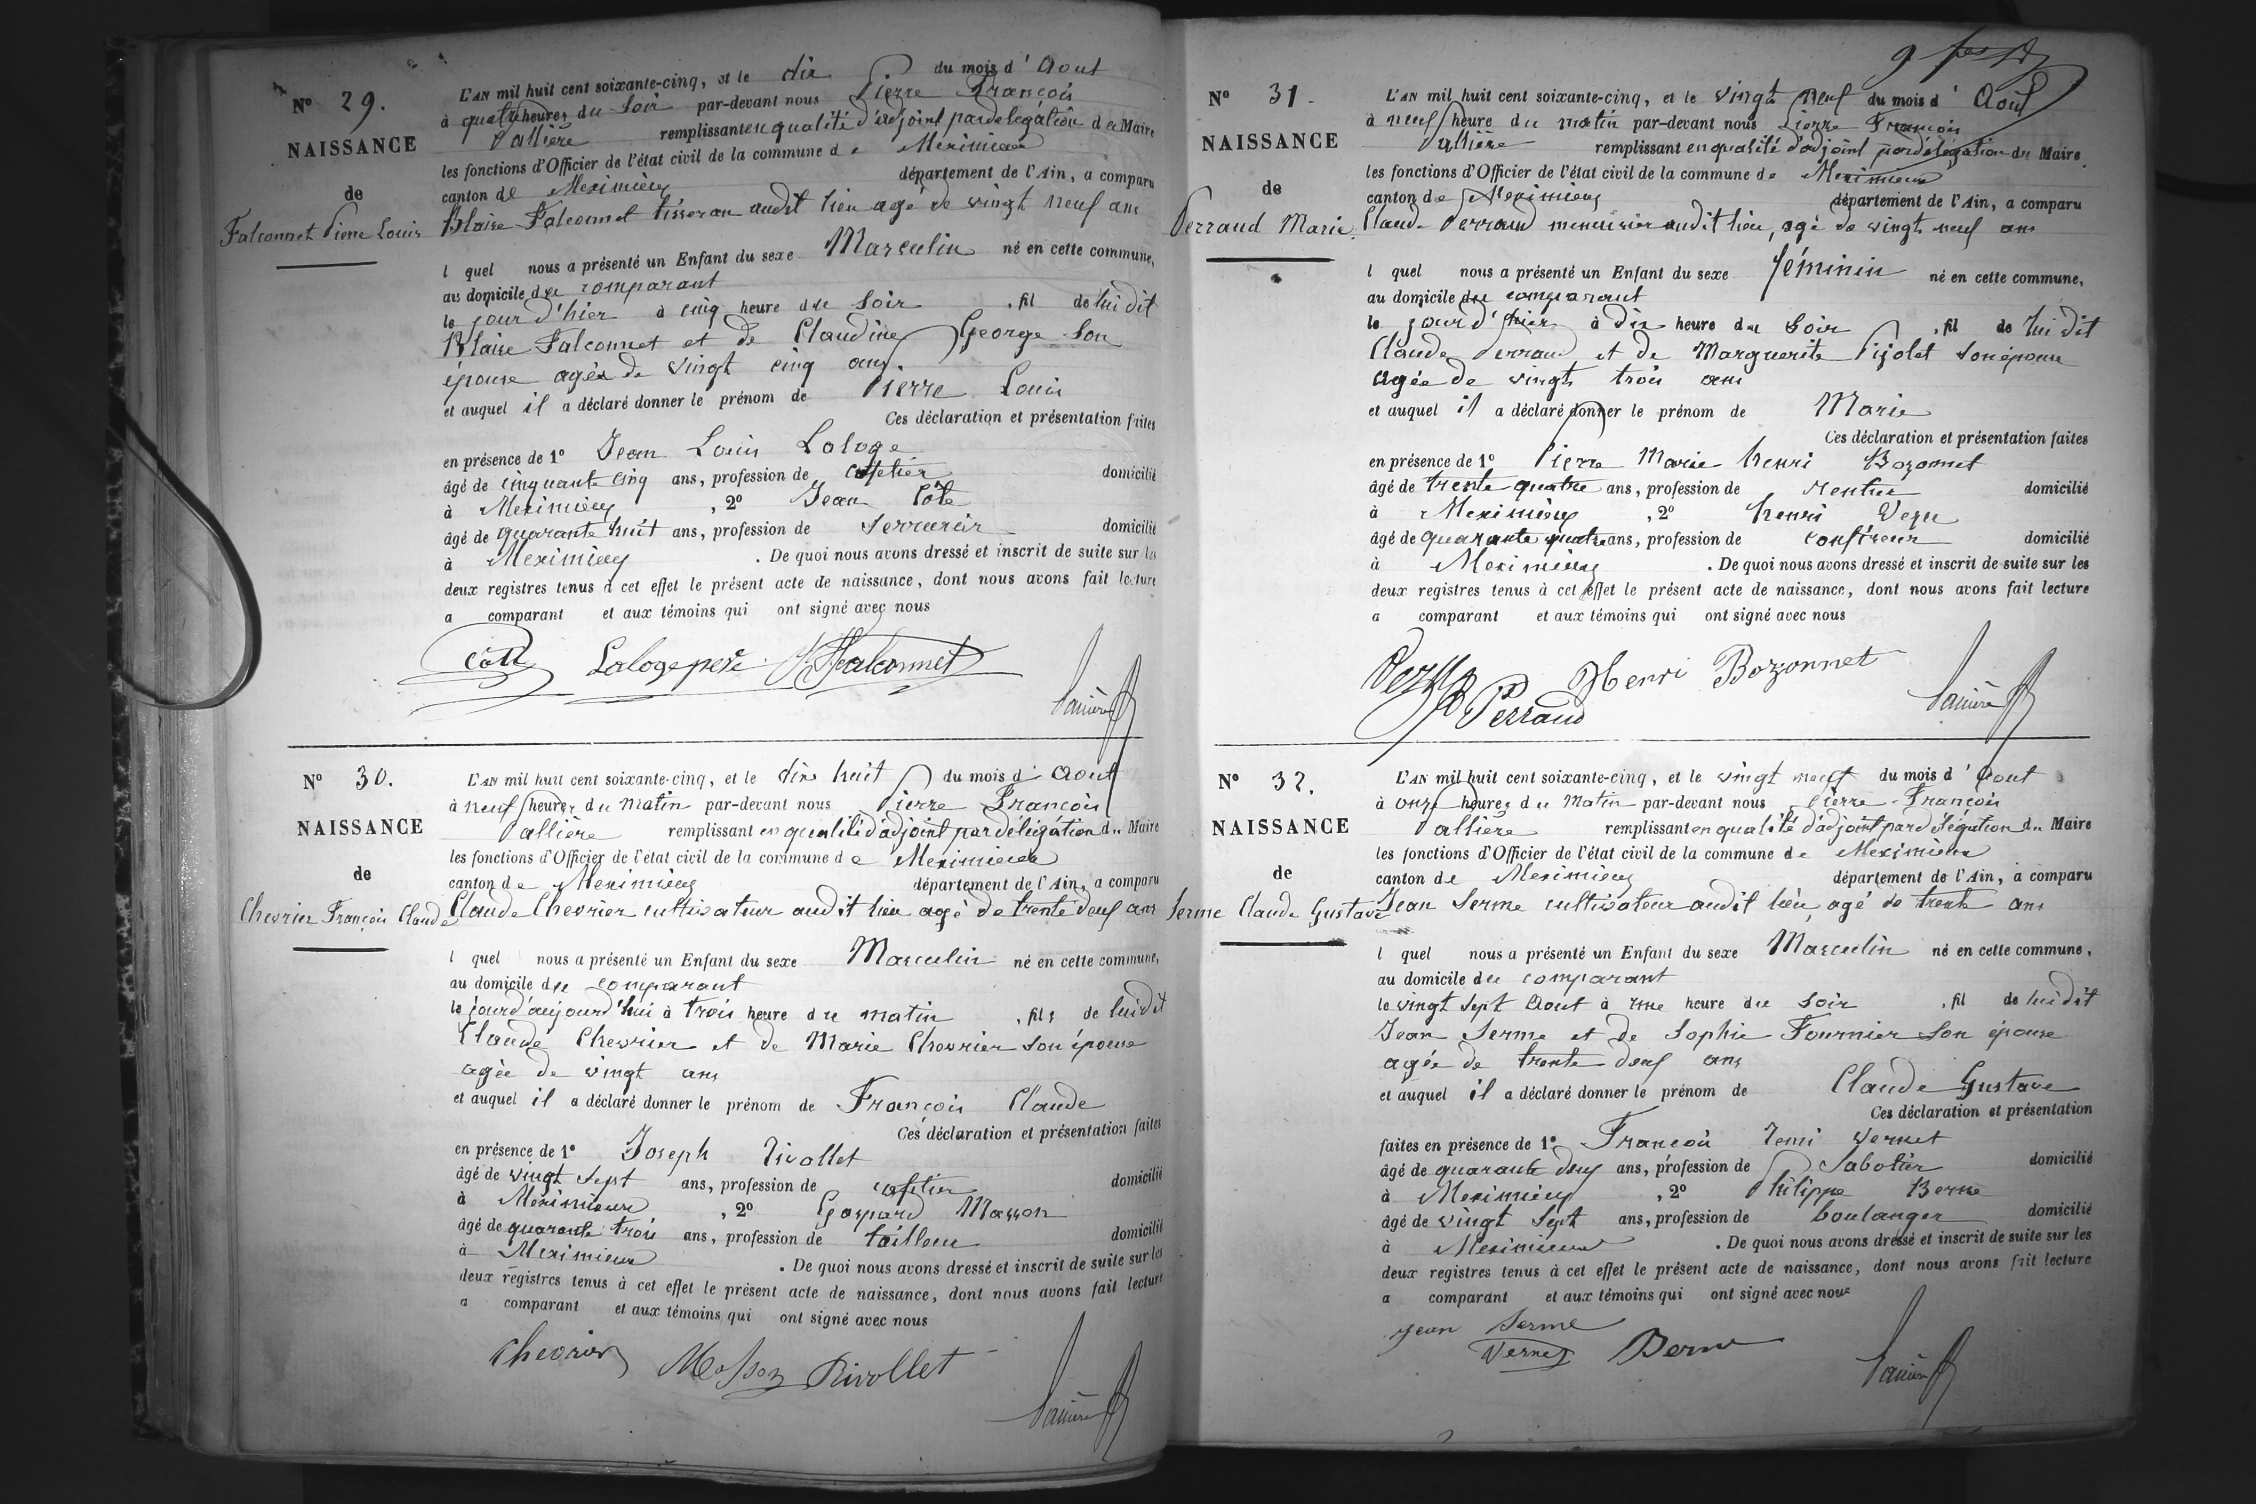 N° 29.
NAISSANCE
de
Falconnet Pierre Louis
L'AN mil huit cent soixante-cinq, et le dix du mois d' Aout
à quatre heures du soir par-devant nous Pierre François
Pallière remplissant en qualité d'adjoint par délégation du Maire
les fonctions d'Officier de l'état civil de la commune de Meximieux
canton de Meximieux département de l'Ain, a comparu
Blaise Falconnet tisseran audit lieu agé de vingt neuf ans
l quel nous a présenté un Enfant du sexe Masculin né en cette commune,
au domicile du comparant
le jour d'hier à cinq heure du soir , fil de lui dit
Blaise Falconnet et de Claudine George son
épouse agée de vingt cinq ans
et auquel il a déclaré donner le prénom de Pierre Louis
Ces déclaration et présentation faites
en présence de 1° Jean Louis Laloge
âgé de cinquante cinq ans, profession de cafetier domicilié
à Meximieux , 2° Jean Côte
âgé de quarante huit ans, profession de serrurier domicilié
à Meximieux . De quoi nous avons dressé et inscrit de suite sur les
deux registres tenus à cet effet le présent acte de naissance, dont nous avons fait lecture
a comparant et aux témoins qui ont signé avec nous
Laloge père Falconnet
N° 30.
NAISSANCE
de
Chevrier François Claude
L'AN mil huit cent soixante-cinq, et le dix huit du mois d' Aout
à neuf heures du matin par-devant nous Pierre François
Pallière remplissant en qualité d'adjoint par délégation du Maire
les fonctions d'Officier de l'état civil de la commune de Meximieux
canton de Meximieux département de l'Ain, a comparu
Claude Chevrier cultivateur audit lieu agé de trente deux ans
l quel nous a présenté un Enfant du sexe Masculin né en cette commune,
au domicile du comparant
le jourd'aujourd'hui à trois heure du matin , fils de lui dit
Claude Chevrier et de Marie Chevrier son épouse
agée de vingt ans
et auquel il a déclaré donner le prénom de François Claude
Ces déclaration et présentation faites
en présence de 1° Joseph Rivollet
âgé de vingt sept ans, profession de cafetier domicilié
à Meximieux , 2° Gaspard Masson
âgé de quarante trois ans, profession de tailleur domicilié
à Meximieux . De quoi nous avons dressé et inscrit de suite sur les
deux registres tenus à cet effet le présent acte de naissance, dont nous avons fait lecture
a comparant et aux témoins qui ont signé avec nous
Chevrier Masson Rivollet
N° 31.
NAISSANCE
de
Perraud Marie
L'AN mil huit cent soixante-cinq, et le vingt neuf du mois d' Aout
à neuf heure du matin par-devant nous Pierre François
Pallière remplissant en qualité d'adjoint par délégation du Maire
les fonctions d'Officier de l'état civil de la commune de Meximieux
canton de Meximieux département de l'Ain, a comparu
Claude Perraud menuisier audit lieu, agé de vingt neuf ans
l quel nous a présenté un Enfant du sexe féminin né en cette commune,
au domicile du comparant
le jour d'hier à dix heure du soir , fil de lui dit
Claude Perraud et de Marguerite Pijolet son épouse
agée de vingt trois ans
et auquel il a déclaré donner le prénom de Marie
Ces déclaration et présentation faites
en présence de 1° Pierre Marie henri Bozonnet
âgé de trente quatre ans, profession de rentier domicilié
à Meximieux , 2° henri
âgé de quarante quatre ans, profession de domicilié
à Meximieux . De quoi nous avons dressé et inscrit de suite sur les
deux registres tenus à cet effet le présent acte de naissance, dont nous avons fait lecture
a comparant et aux témoins qui ont signé avec nous
Henri Bozonnet
Perraud
N° 32.
NAISSANCE
de
Serme Claude Gustave
L'AN mil huit cent soixante-cinq, et le vingt neuf du mois d' Aout
à onze heures du matin par-devant nous Pierre François
Pallière remplissant en qualité d'adjoint par délégation du Maire
les fonctions d'Officier de l'état civil de la commune de Meximieux
canton de Meximieux département de l'Ain, a comparu
Jean Serme cultivateur audit lieu, agé de trente ans
l quel nous a présenté un Enfant du sexe Masculin né en cette commune,
au domicile du comparant
le vingt sept Aout à une heure du soir , fil de lui dit
Jean Serme et de Sophie Fournier son épouse
agée de trente deux ans
et auquel il a déclaré donner le prénom de Claude Gustave
Ces déclaration et présentation
faites en présence de 1° François Remi Vernet
âgé de quarante deux ans, profession de Sabotier domicilié
à Meximieux , 2° Philippe Berne
âgé de vingt sept ans, profession de boulanger domicilié
à Meximieux . De quoi nous avons dressé et inscrit de suite sur les
deux registres tenus à cet effet le présent acte de naissance, dont nous avons fait lecture
a comparant et aux témoins qui ont signé avec nous
Jean Serme
Vernet Berne